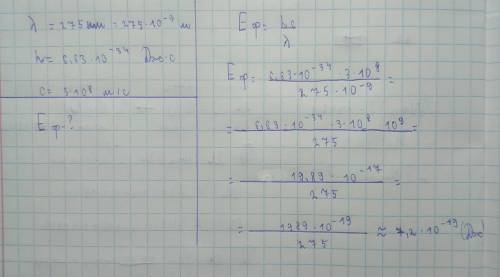 λ = 275 нм = 275·10⁻⁹ м
h = 6,63·10⁻³⁴ Дж·с
c = 3·10⁸ м/с
Eф-?
Eф = hc / λ
Eф = 6,63·10⁻³⁴·3·10⁸ / 275·10⁻⁹ =
= 6,63·10⁻³⁴·3·10⁸·10⁹ / 275 =
= 19,89·10⁻¹⁷ / 275 =
= 1989·10⁻¹⁹ / 275 ≈ 7,2·10⁻¹⁹ (Дж)